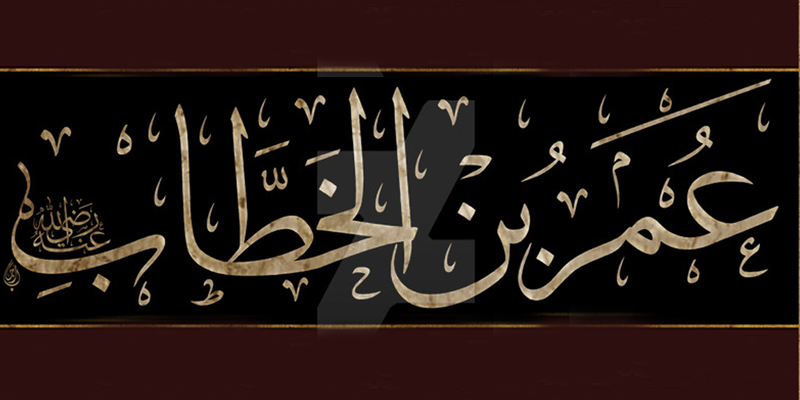 عُمَرُ بْنُ الخَطَّابِ
رضي الله عنه